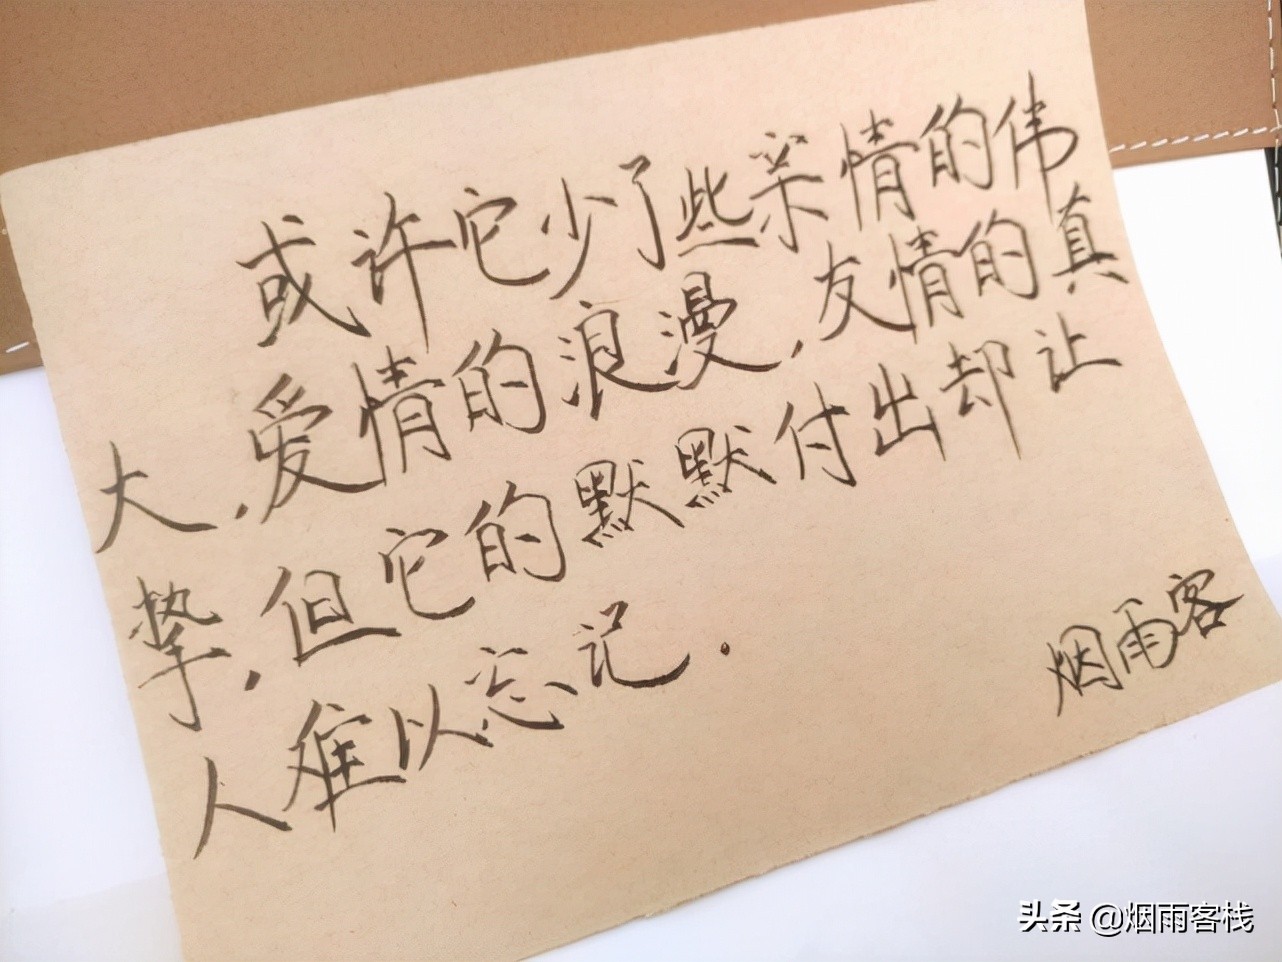 或许它少了些亲情的伟
大,爱情的浪漫,友情的真
挚,但它的默默付出却让
人难以忘记.
烟雨客
头条 @烟雨客栈